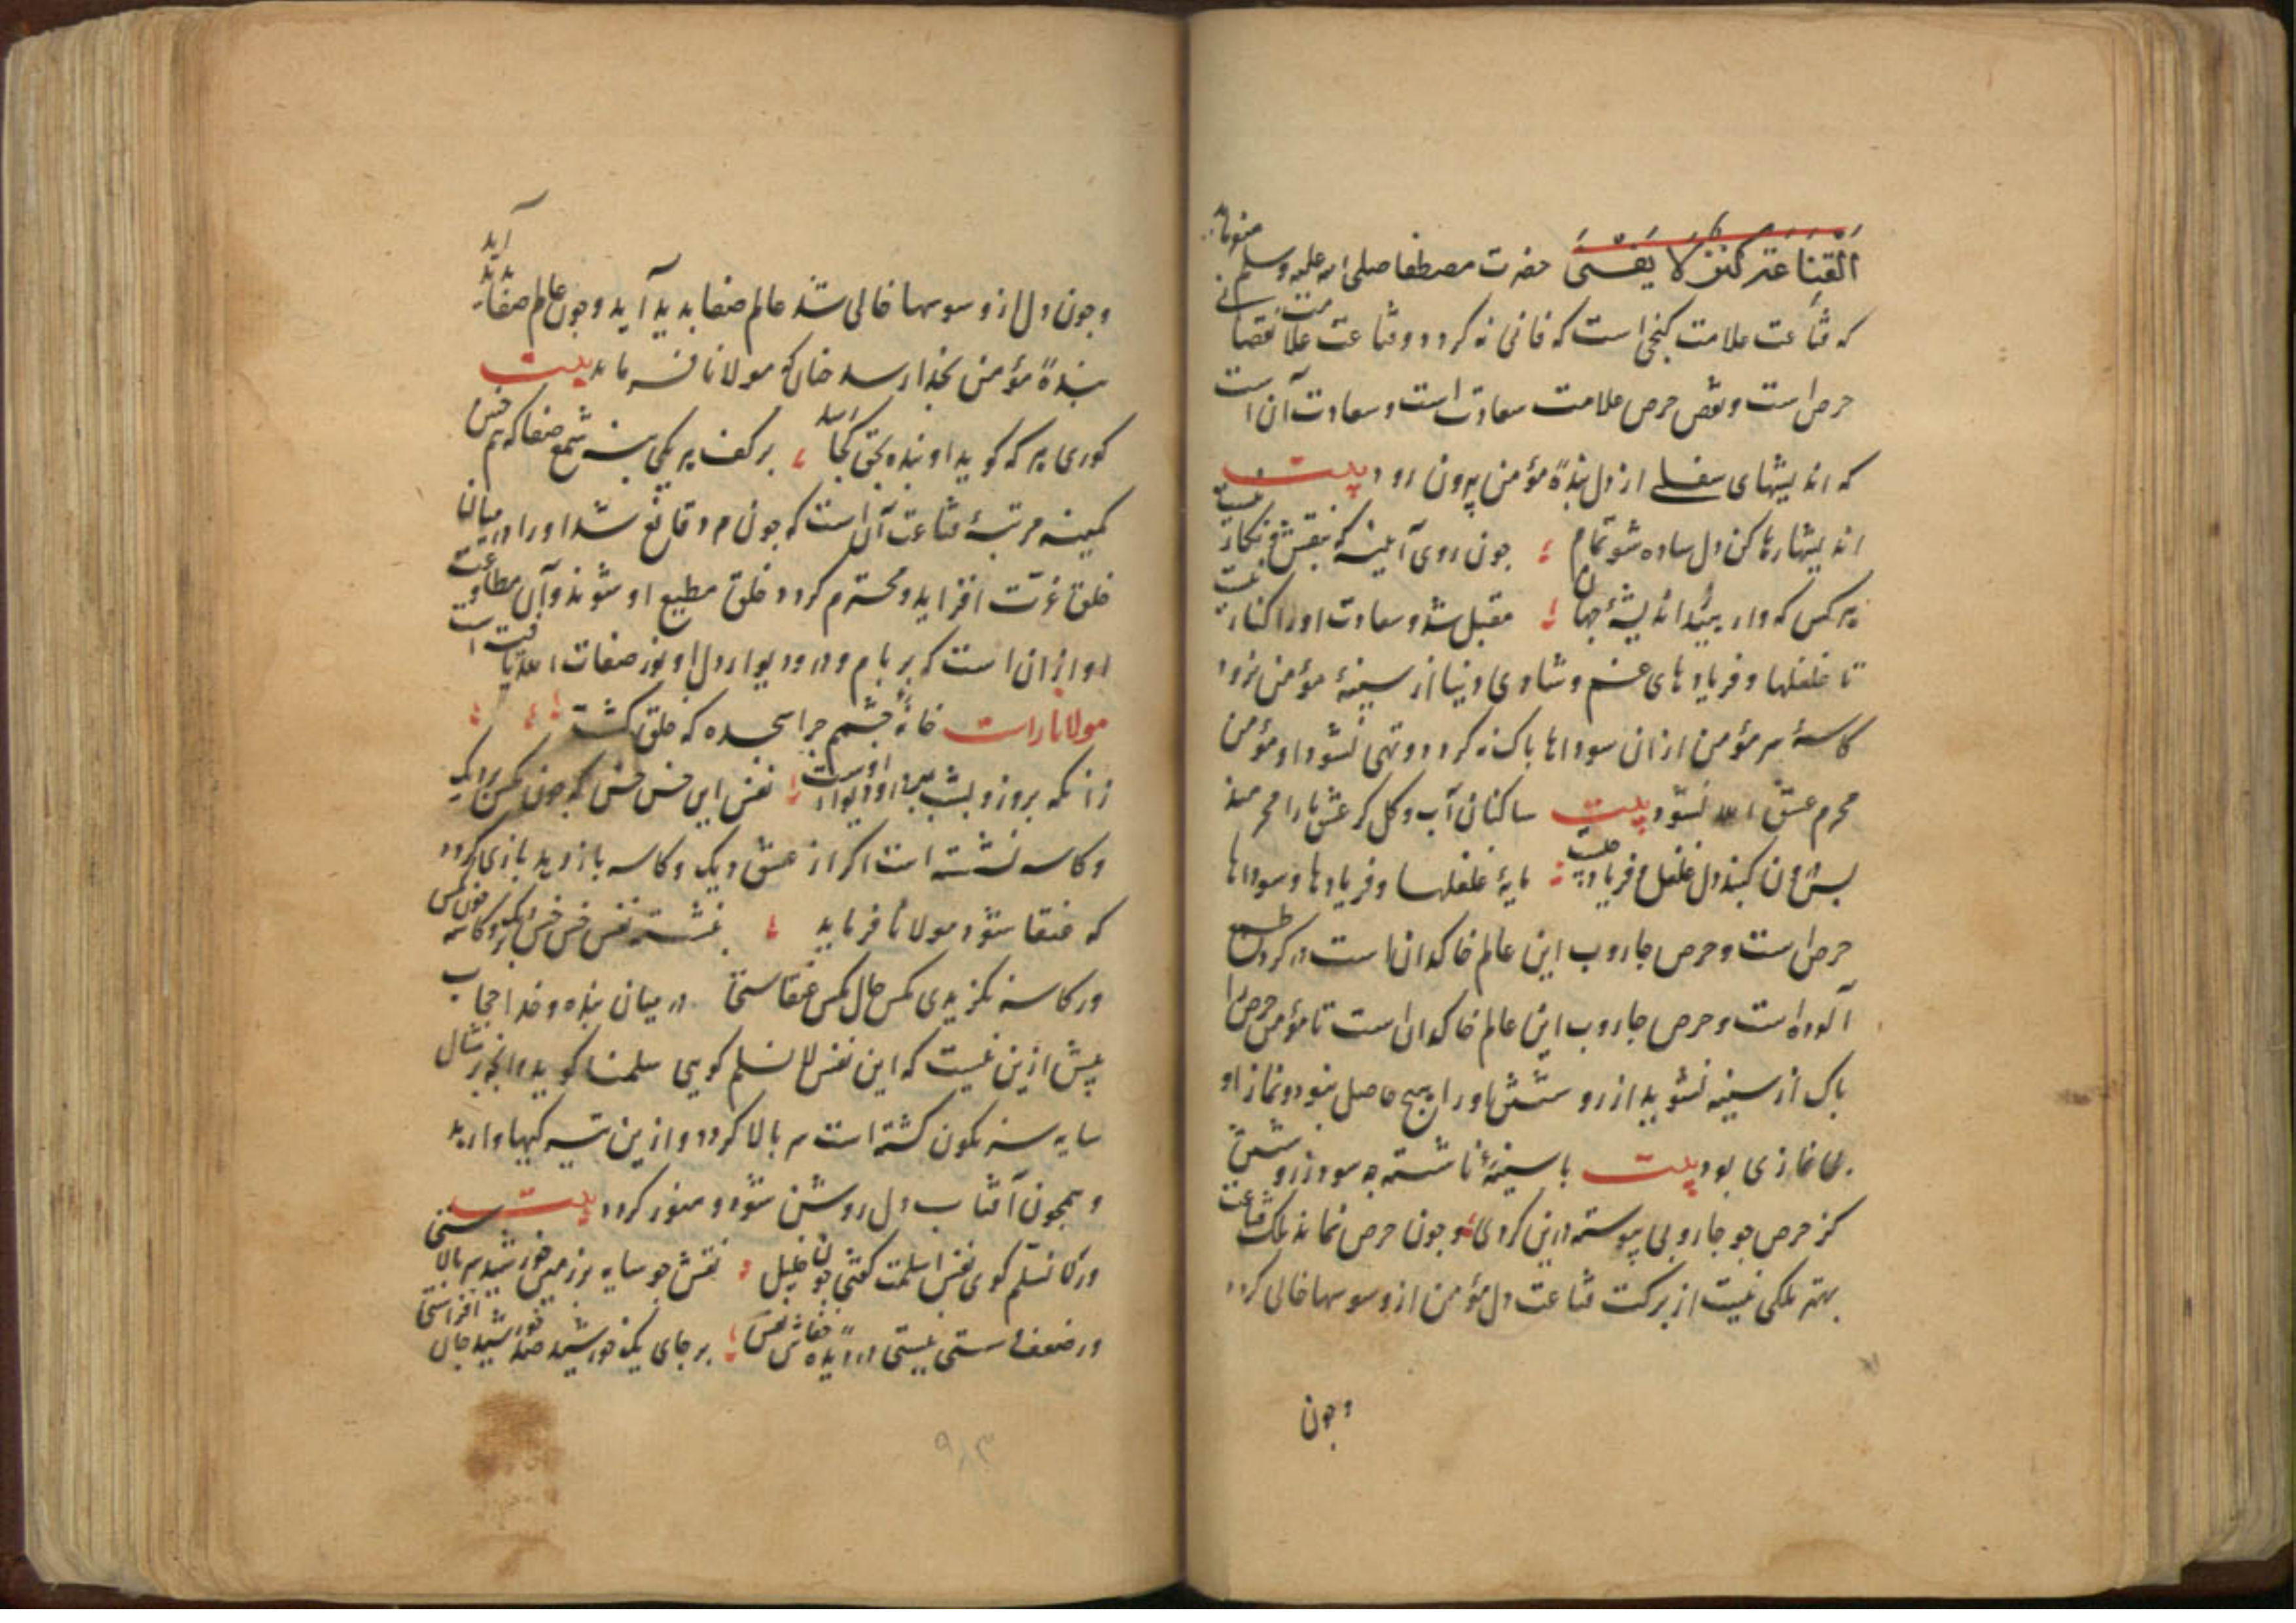 اَلْقَنَاعَتُ كَنْزٌ لَا يَفْنَىٰ حضرت مصطفا صلی الله علیه وسلم میفرماید
که قناعت علامت کنجی است که فانی نه کردد و قناعت علامت نقصانی
حرص است و نقص حرص علامت سعادت است و سعادت آن است
که اندیشهای سفلے از دل بندهٔ مؤمن بیرون رود بیت
اندیشها رها کن دل ساده شو تمام ؛ جون روی آینه که بنقش و نکار نیست
هر کس که دارد اندیشهٔ جهان ؛ مقبل شد و سعادت او را کنار نیست
تا غلغلها و فریادهای غم و شادی دنیا از سینهٔ مؤمن نرود
کاسهٔ سر مؤمن ازان سوداها پاک نه کردد و تهی نشود او مؤمن
محرم عشق الله نشود بیت ساکنان آب و کل کر عشق ما را محرمند
بس جون کنبد دل غلغل و فریاد چیست ؛ مایهٔ غلغلها و فریادها و سوداها
حرص است و حرص جاروب این عالم خاکدان است در کرد طمع
آلوده است و حرص جاروب این عالم خاکدان است تا مؤمن حرص را
پاک از سینه نشوید از رو شستن او را هیچ حاصل نبود و نماز او
نمازی بود بیت با سینهٔ ناشسته چه سود ز رو شستن
کز حرص جو جاروبی پیوسته درین کردی ؛ و جون حرص نماند ملک قناعت
بهتر ملکی نیست از برکت قناعت دل مؤمن از وسوسها خالی کردد
وجون
وجون دل از وسوسها خالی شد عالم صفا بدید آید وجون عالم صفا بدید آید
بندهٔ مؤمن بخدا رسد جنانکه مولانا فرماید بیت
کوری هر که کوید او بنده بحق کجا رسد ؛ بر کف هر یکی بنه شمع صفا که هم جنین
کمینه مرتبهٔ قناعت آن است که جون مرد قانع شد او را در میان
خلق عزّت افزاید و محترم کردد خلق مطیع او شوند و آن مطاوعت
او ازان است که بر بام و در و دیوار دل او نور صفات الله تافت است
مولانا راست خانهٔ جشم جرا سجده که خلق کشت ؛ ؛
زانکه بروز و بشب بر در و دیوار اوست ؛ نفس این خس خس که جون مکس بر دیک
و کاسه نشسته است اکر از عشق دیک و کاسه باز رهد بازی کردد
که عنقا شود مولانا فرماید ؛ بنشسته نفس خس خس بر دیک و کاسه جون مکس
ور کاسه نکزیدی مکس حال مکس عنقاستی در میان بنده و خدا حجاب
بیش ازین نیست که این نفس لا نسلم کوی سلمنا کوید و آنجه بر مثال
سایه سرنکون کشته است سر بالا کردد و ازین تیره کیها وارهد
و همجون آفتاب دل روشن شود و منور کردد بیت
ور لا نسلم کوی نفس اسلمت کفتی جون خلیل ؛ نفس جو سایه بر زمین خورشید بر بالاستی
ور ضعف سستی نیستی در دیده خفاش نفس ؛ بر جای یک خورشید صد خورشید جان افزاستی
۹۸۳